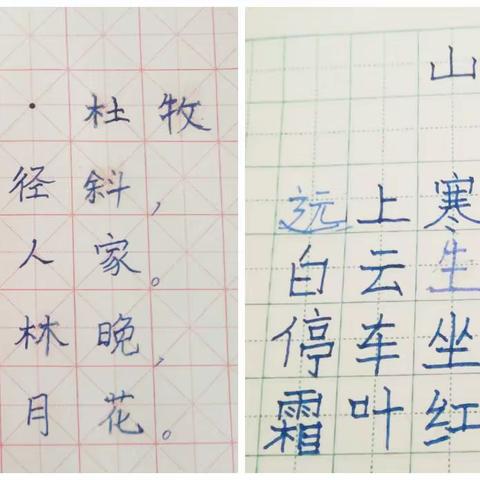 ·杜牧
径斜，
人家。
林晚，
月花。
山
远上寒
白云生
停车坐
霜叶红